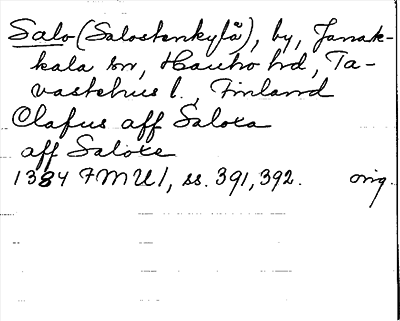 Salo (Salostenkylä), by, Janak-
kala sn, Hauho hd, Ta-
vastehus l., Finland
Olafus aff Saloxa
aff Saloxe
1384 FMU 1, ss. 391, 392. orig.